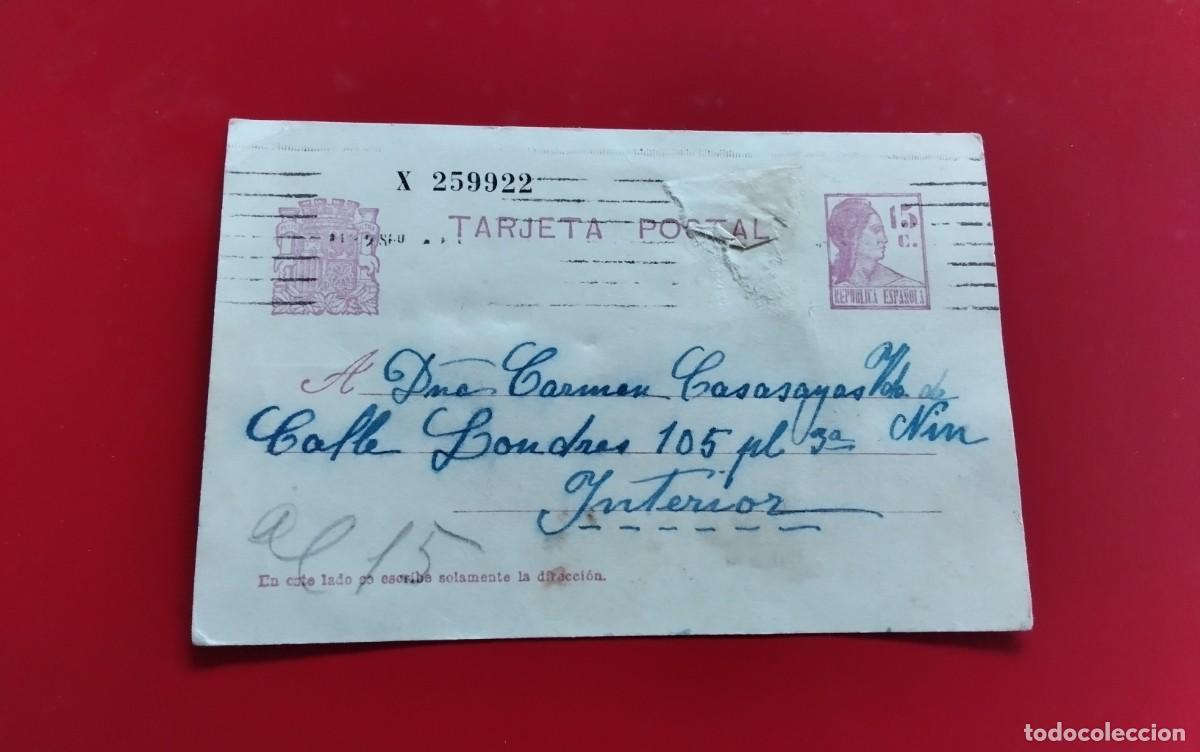 X 259922
TARJETA POSTAL
15
C.
REPUBLICA ESPAÑOLA
A Dña Carmen Casasayas Vda de
Nin
Calle Londres 105 pl 3ª
Interior
al 15
En este lado se escribe solamente la dirección.
todocoleccion